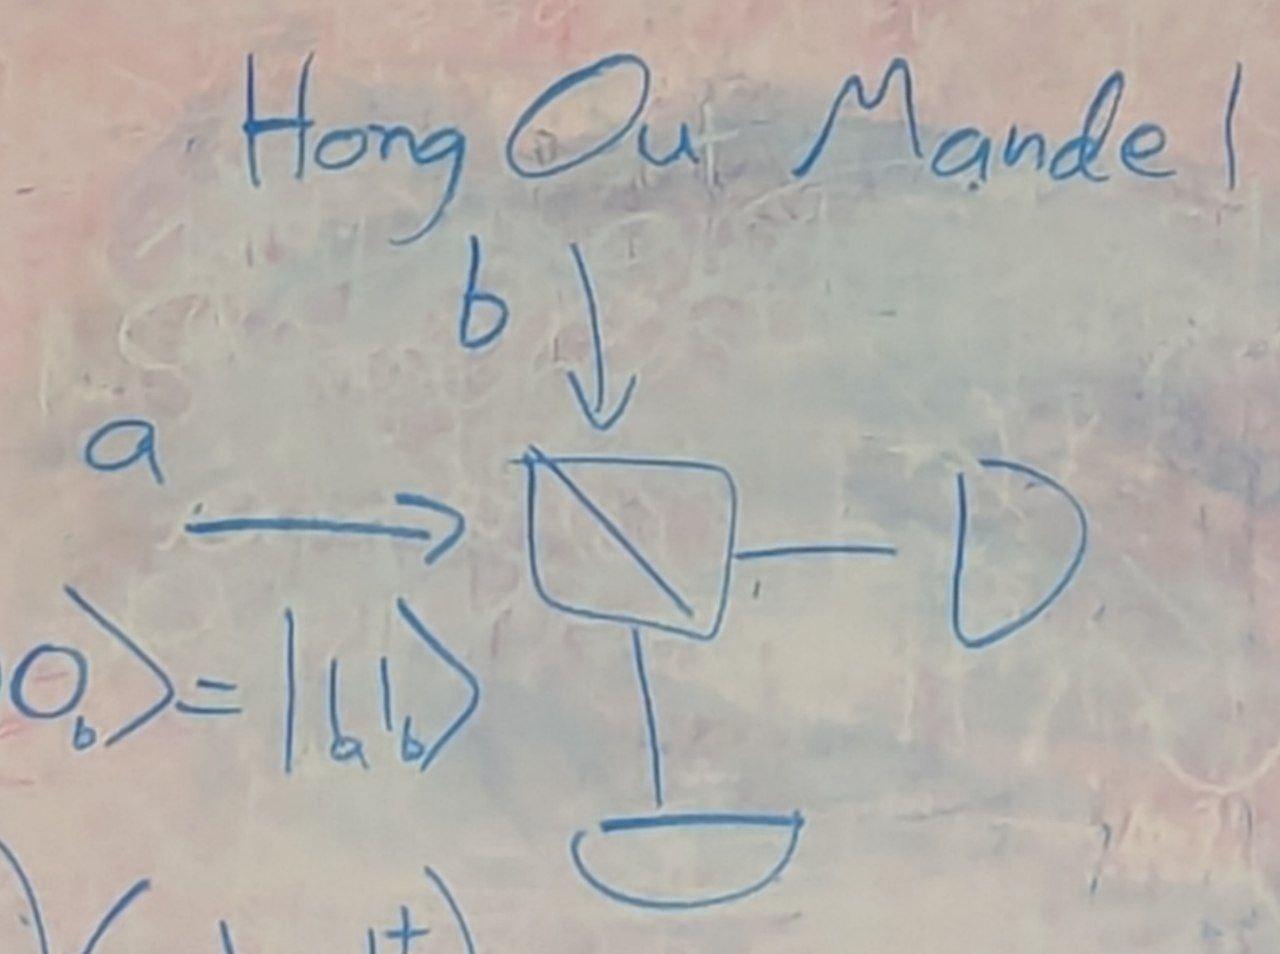 Hong Ou Mandel
b
a
0_b⟩ = |1_a 1_b⟩